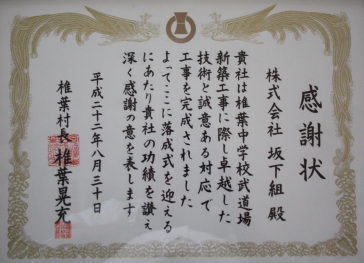 感謝状
株式会社 坂下組 殿
貴社は椎葉中学校武道場
新築工事に際し卓越した
技術と誠意ある対応で
工事を完成されました
よってここに落成式を迎える
にあたり貴社の功績を讃え
深く感謝の意を表します
平成二十二年八月三十日
椎葉村長 椎葉晃充